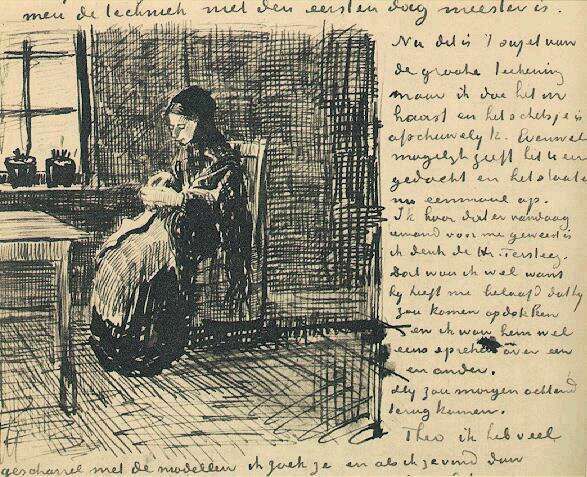 men de techniek niet den eersten dag meester is.
Nu dit is 't sujet van
de groote teekening
maar ik doe het in
haast en het schetsje is
afschuwelyk. Evenwel
mogelyk geeft het U een
gedacht en het staat
nu eenmaal op.
Ik hoor dat er vandaag
iemand voor me geweest is
ik denk de Hr Tersteeg.
Dat wou ik wel want
hy heeft me beloofd dat hy
zou komen opdokken
en ik wou hem wel
eens spreken over een
en ander.
Hy zou morgen ochtend
terug komen.
Theo ik heb veel
gescharrel met de modellen ik zoek ze en als ik ze vond dan